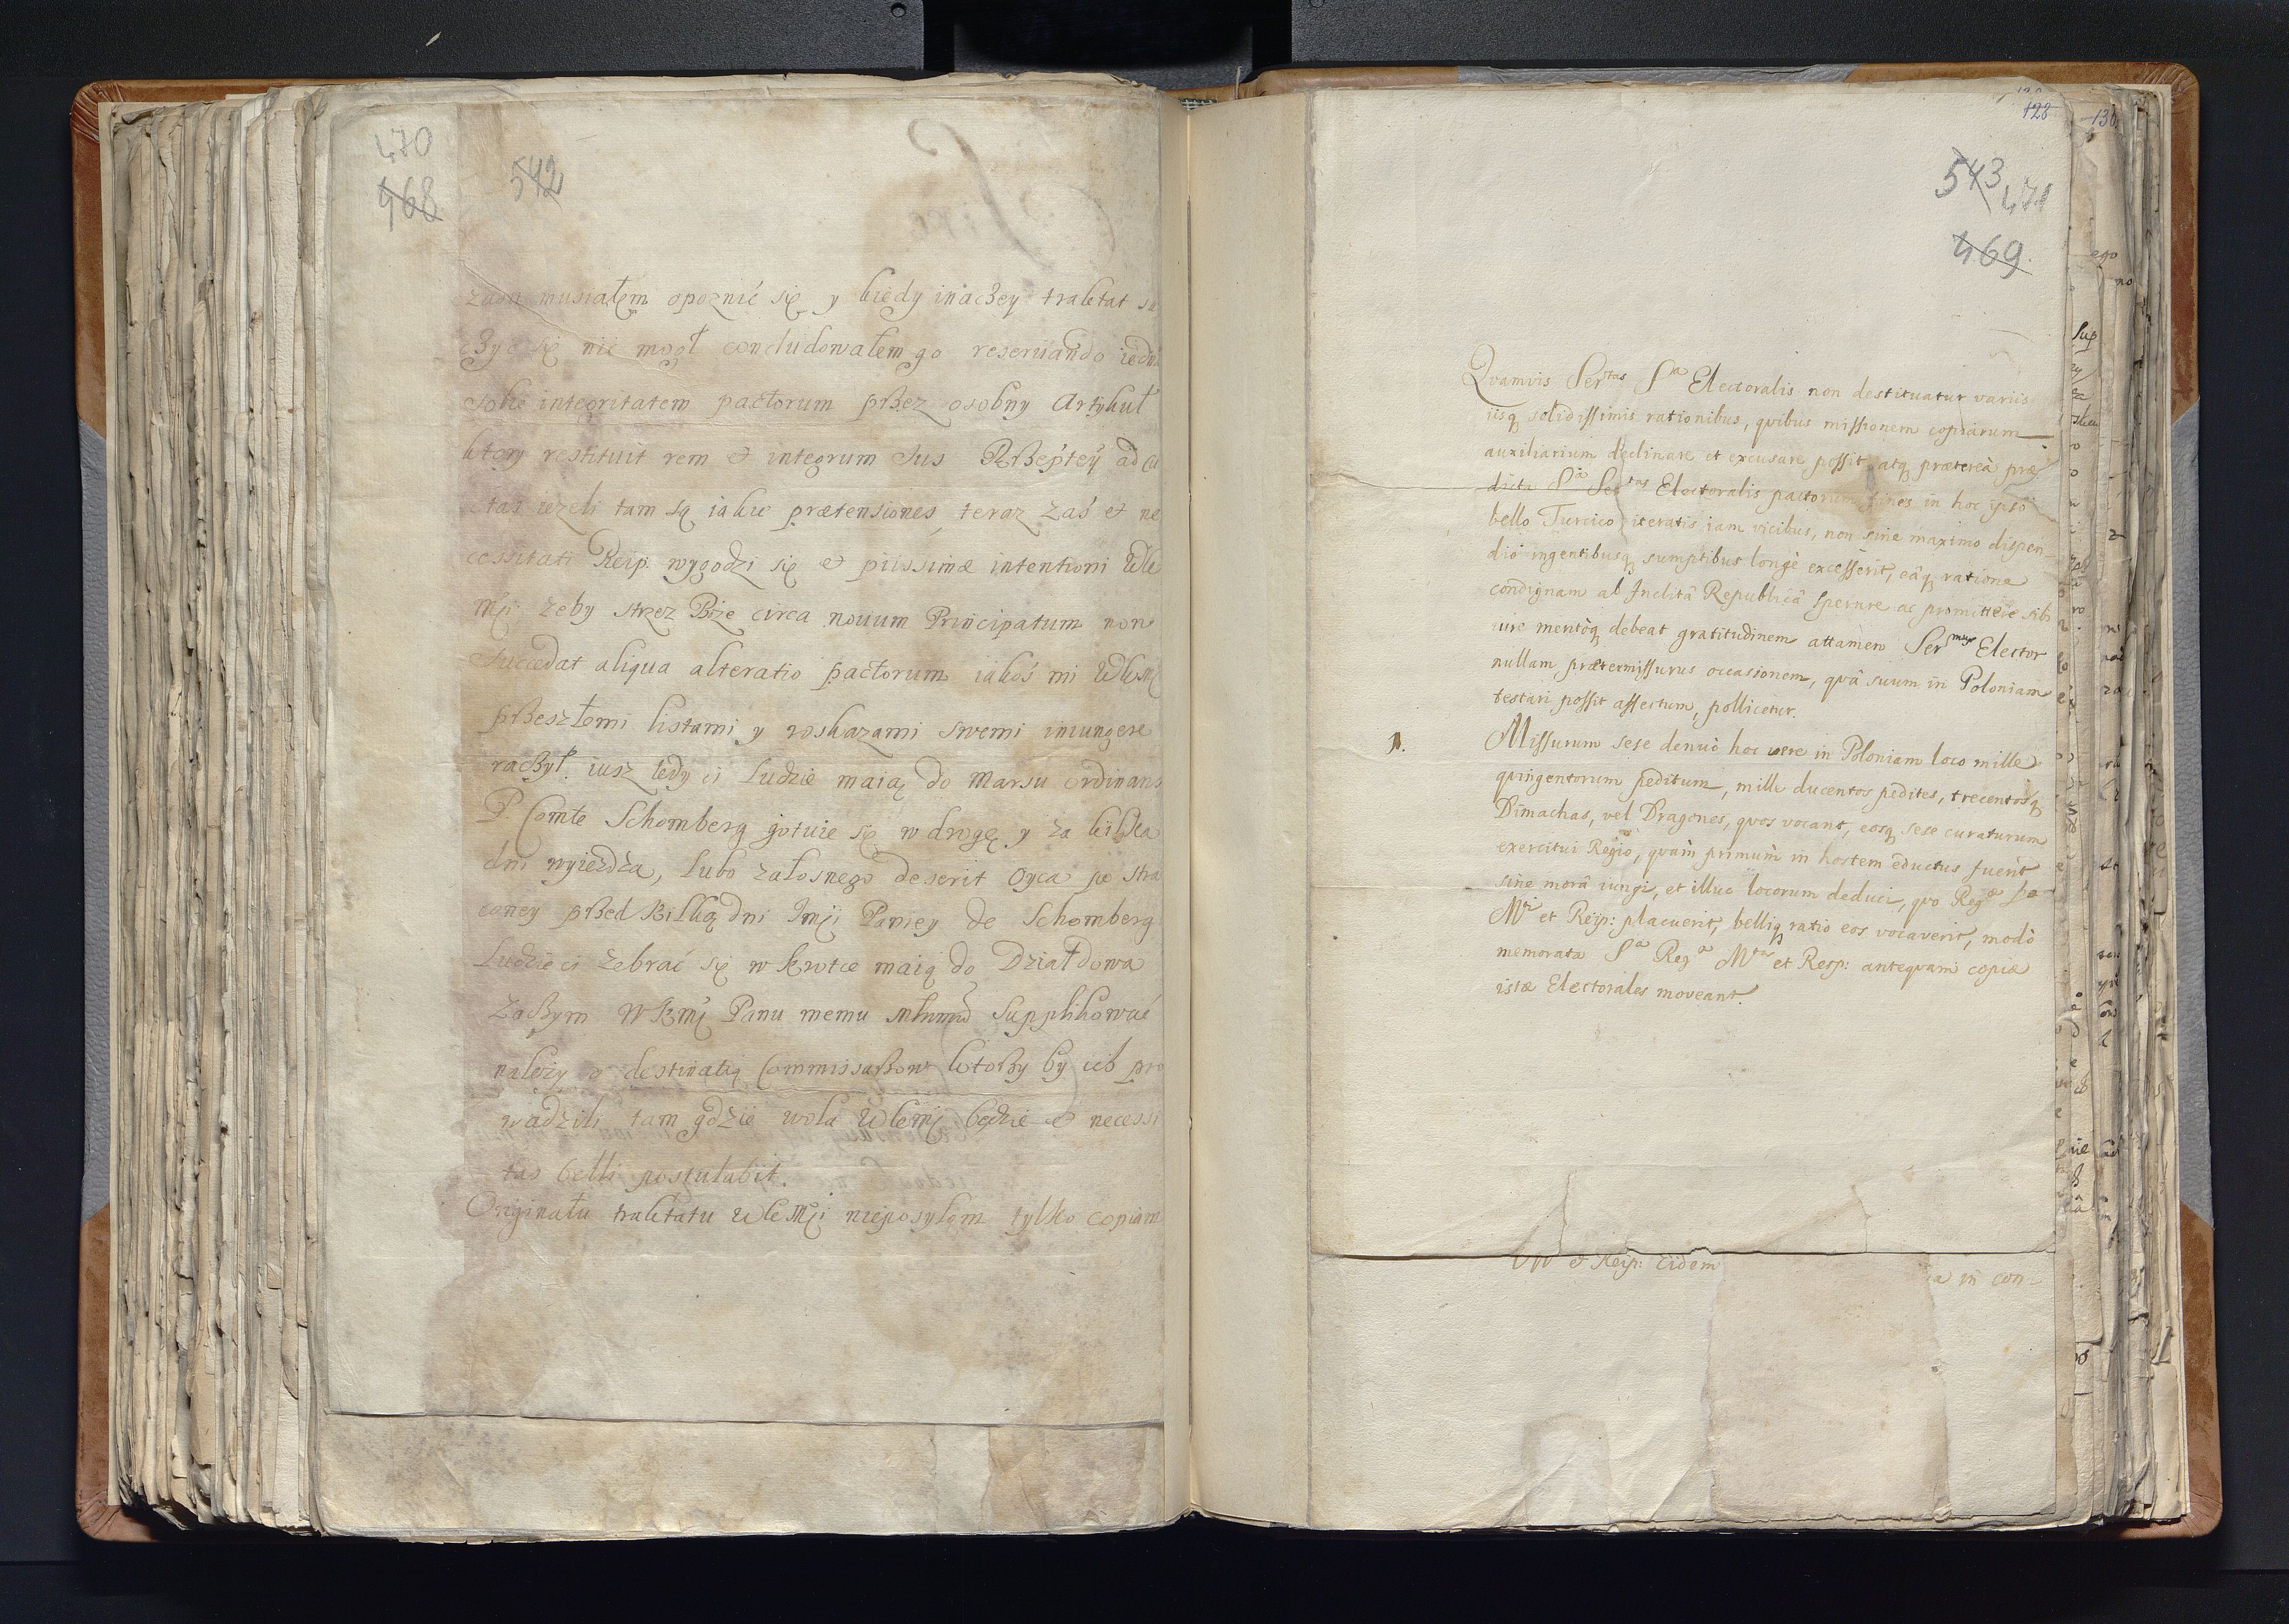 470
468
542
musiałem opoznić się y kiedy inaczey traktat
się nie mogł concludowałem go reseruando
sobie integritatem pactorum przez osobny Artykuł
ktory restituit rem et integrum Jus Rzeptey ad
tam są iakie prætensiones, teraz zaś et ne
cessitati Reip. wygodzi się et piissimæ intentioni
żeby strzez Bże circa nouum Principatum non
succedat aliqua alteratio pactorum iakoś mi
przeszłemi listami y roskazami swemi iniungere
raczył. iusz tedy ci ludzie maią do marsu ordinans
P. Comte Schomberg gotuie się w drogę y za kilka
dni wyieżdża, lubo załosnego deserit Oyca po stra
coney przed kilką dni Imći Paniey de Schomberg
Ludzie ci zebrać się w krotce maią do Działdowa
zaczym W Kmć Panu memu supplikować
należy o destinatią Commissarzow ktorzy by ich pro
wadzili tam gdzie wola będzie et necessi
tas belli postulabit.
Originału traktatu nieposylam tylko copiam
128
130
543
471
469.
Qvamvis Ser.tas S.a Electoralis non destituatur variis
iisq solidissimis rationibus, qvibus missionem copiarum
auxiliarium declinare et excusare possit, atq prætereà præ
dicta S.a Ser.tas Electoralis pactorum fines in hoc ipso
bello Turcico iteratis iam vicibus, non sine maximo dispen-
dio ingentibusq sumptibus longè excesserit, eâq ratione
condignam ab Inclitâ Republicâ sperare ac promittere sibi
iure meritòq debeat gratitudinem attamen Ser.mus Elector
nullam prætermissurus occasionem, qvâ suum in Poloniam
testari possit affectum, pollicetur.
1. Missurum sese denuò hoc vere in Poloniam loco mille
qvingentorum peditum, mille ducentos pedites, trecentosq
Dimachas, vel Dragones, qvos vocant, eosq sese curaturum
exercitui Regio, qvàm primùm in hostem eductus fuerit
sine morâ iungi, et illuc locorum deduci, qvo Reg.æ S.æ
M.ti et Reip: placuerit, belliq ratio eos vocaverit, modò
memorata S.a Reg.a M.tas et Resp: anteqvam copiæ
istæ Electorales moveant.
et Reip: eidem
in con-